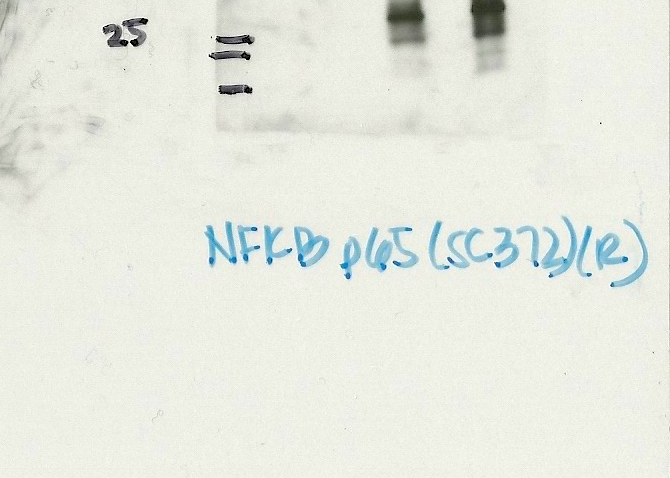 25
NFKB p65 (SC372)(R)